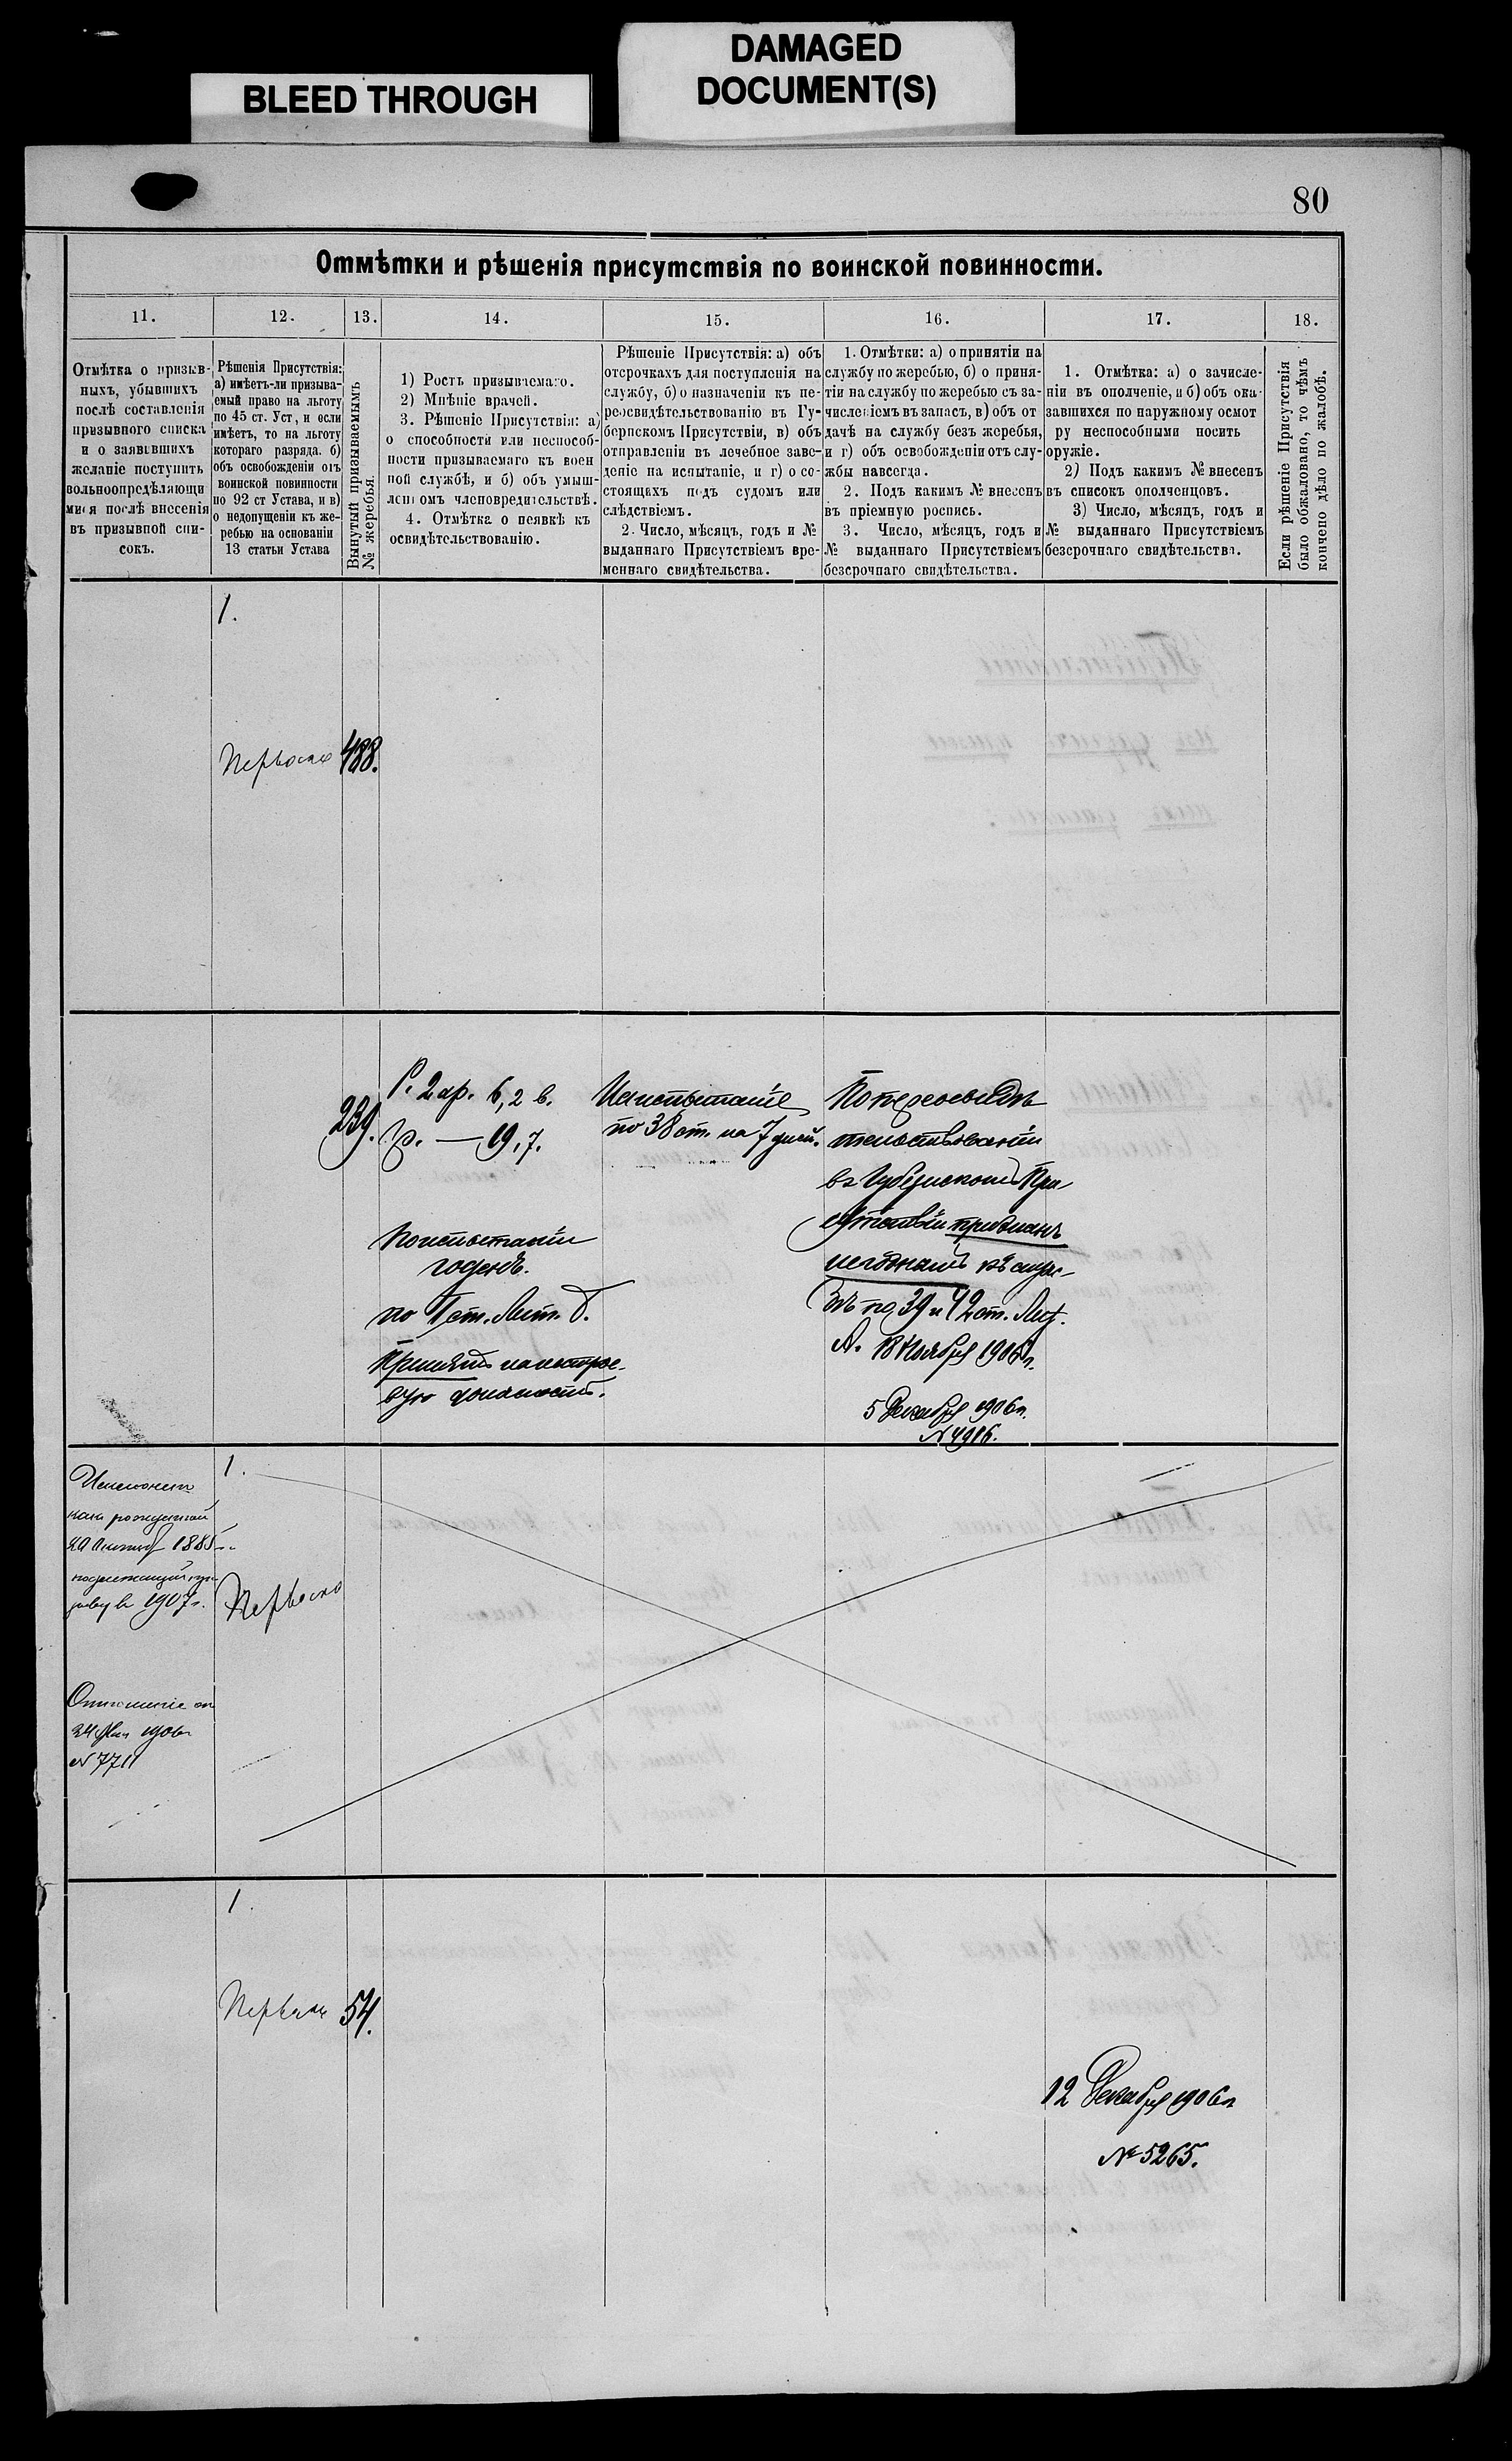 BLEED THROUGH
DAMAGED
DOCUMENT(S)
80
Отмѣтки и рѣшенія присутствія по воинской повинности.
11.
12.
13.
14.
15.
16.
17.
18.
Отмѣтка о призыв-
ныхъ, убывшихъ
послѣ составленія
призывного списка
и о заявившихъ
желаніе поступить
вольноопредѣляющи
мися послѣ внесенія
въ призывной спи-
сокъ.
Рѣшенія Присутствія:
а) имѣетъ-ли призыва-
емый право на льготу
по 45 ст. Уст, и если
имѣетъ, то на льготу
котораго разряда. б)
объ освобожденіи отъ
воинской повинности
по 92 ст Устава, и в)
о недопущеніи къ же-
ребью на основаніи
13 статьи Устава
Вынутый призываемымъ
№ жеребья.
1) Ростъ призываемаго.
2) Мнѣніе врачей.
3. Рѣшеніе Присутствія: а)
о способности или неспособ-
ности призываемаго къ воен
ной службѣ, и б) объ умыш-
ленномъ членовредительствѣ.
4. Отмѣтка о неявкѣ къ
освидѣтельствованію.
Рѣшеніе Присутствія: а) объ
отсрочкахъ для поступленія на
службу, б) о назначеніи къ пе-
реосвидѣтельствованію въ Гу-
бернскомъ Присутствіи, в) объ
отправленіи въ лечебное заве-
деніе на испытаніе, и г) о со-
стоящихъ подъ судомъ или
слѣдствіемъ.
2. Число, мѣсяцъ, годъ и №
выданнаго Присутствіемъ вре-
меннаго свидѣтельства.
1. Отмѣтки: а) о принятіи на
службу по жеребью, б) о приня-
тіи на службу по жеребью съ за-
численіемъ въ запасъ, в) объ от
дачѣ на службу безъ жеребья,
и г) объ освобожденіи отъ слу-
жбы навсегда.
2. Подъ какимъ № внесенъ
въ пріемную роспись.
3. Число, мѣсяцъ, годъ и
№ выданнаго Присутствіемъ
безсрочнаго свидѣтельства.
1. Отмѣтка: а) о зачисле-
ніи въ ополченіе, и б) объ ока-
завшихся по наружному осмот
ру неспособными носить
оружіе.
2) Подъ какимъ № внесенъ
въ списокъ ополченцовъ.
3) Число, мѣсяцъ, годъ и
№ выданнаго Присутствіемъ
безсрочнаго свидѣтельства.
Если рѣшеніе Присутствія
было обжаловано, то чѣмъ
кончено дѣло по жалобѣ.
1.
488.
239.
Р. 2 ар. 6,2 в.
Гр. — 19,7.
По испытаніи
годенъ.
по 1 ст. Лит. Б.
Принятъ на нестрое-
вую должность.
На испытаніе
по 38 ст. на 7 дней.
По переосвидѣ
тельствованіи
въ Губернскомъ При-
сутствіи признанъ
негоднымъ къ служ-
бѣ по 39 и 42 ст. Лит.
А. 18 Ноября 1906 г.
5 Декабря 1906 г.
№ 4916.
1.
1885 г.
1907 г.
Отношеніе от
24 Мая 1906 г
№ 7711
1.
54.
12 Декабря 1906 г
№ 5265.